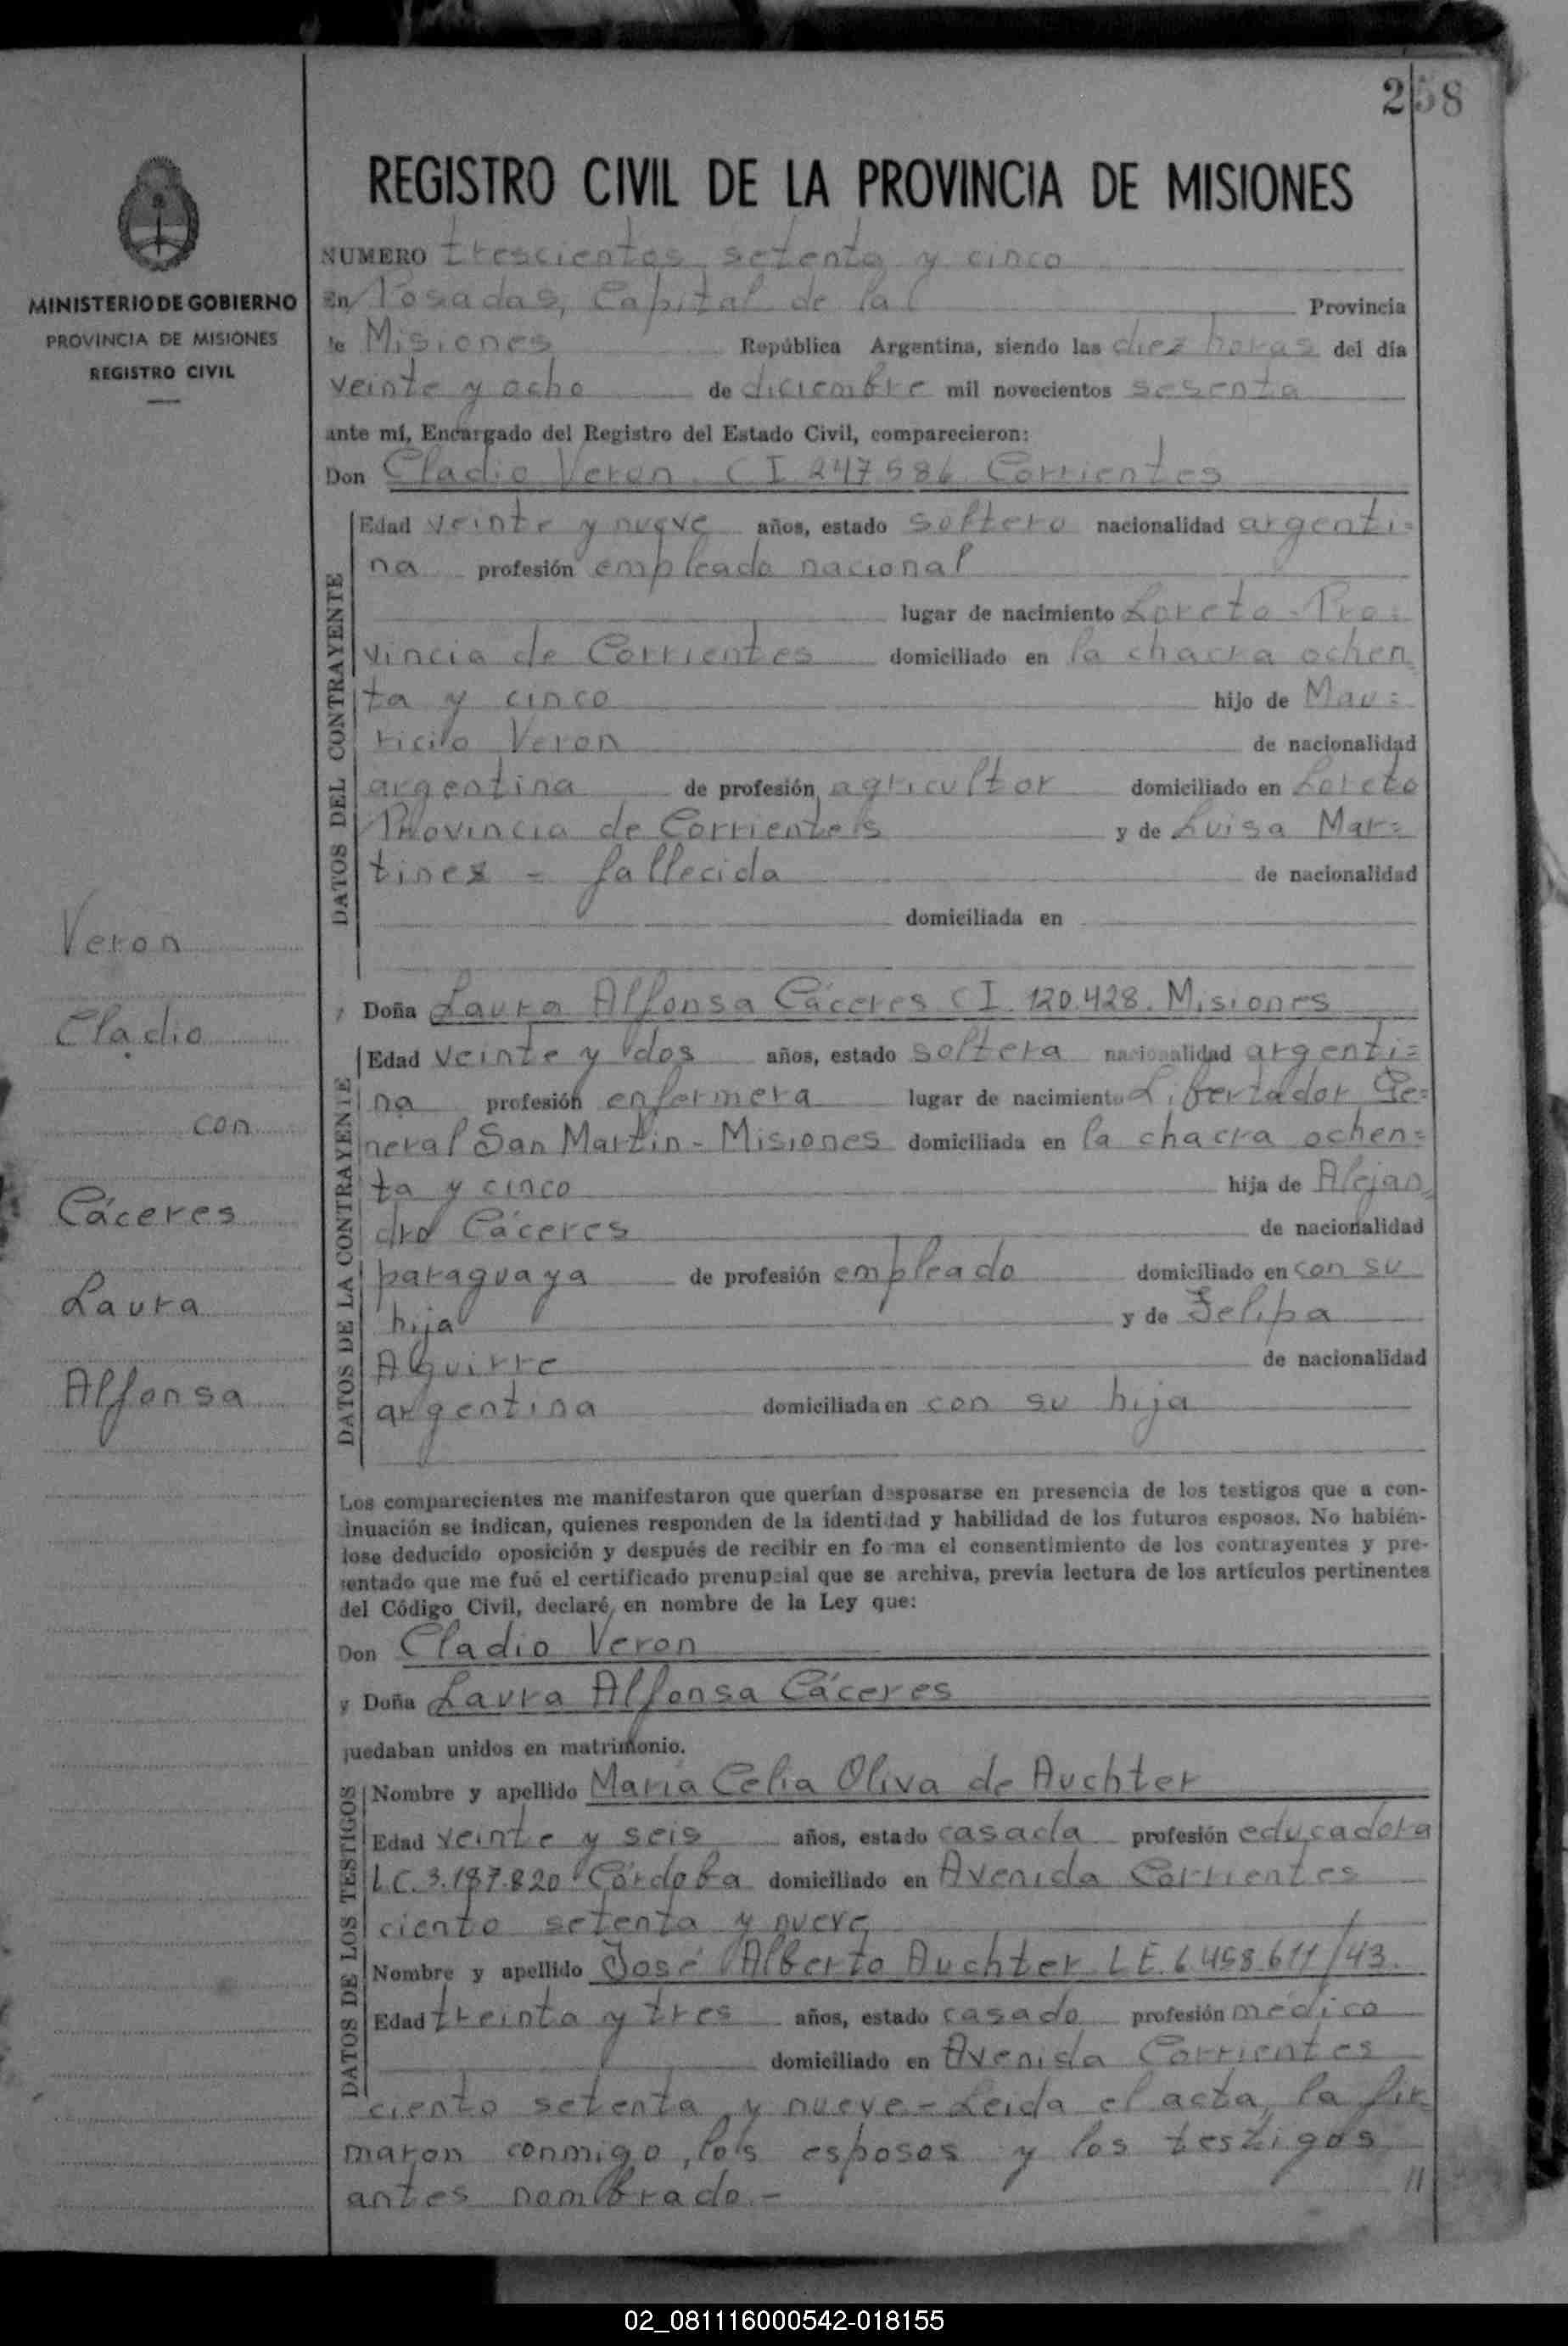 258
REGISTRO CIVIL DE LA PROVINCIA DE MISIONES
MINISTERIO DE GOBIERNO
PROVINCIA DE MISIONES
REGISTRO CIVIL
Veron
Cladio
con
Cáceres
Laura
Alfonsa
NUMERO trescientos setenta y cinco
En Posadas, Capital de la Provincia
de Misiones República Argentina, siendo las diez horas del día
veinte y ocho de diciembre mil novecientos sesenta
ante mí, Encargado del Registro del Estado Civil, comparecieron:
Don Cladio Veron CI 247586 Corrientes
DATOS DEL CONTRAYENTE
Edad veinte y nueve años, estado soltero nacionalidad argenti=
na profesión empleado nacional
lugar de nacimiento Loreto - Pro=
vincia de Corrientes domiciliado en la chacra ochen=
ta y cinco hijo de Mau=
ricio Veron de nacionalidad
argentina de profesión agricultor domiciliado en Loreto
Provincia de Corrientes y de Luisa Mar=
tines - fallecida de nacionalidad
domiciliada en
y Doña Laura Alfonsa Cáceres CI. 120.428. Misiones
DATOS DE LA CONTRAYENTE
Edad veinte y dos años, estado soltera nacionalidad argenti=
na profesión enfermera lugar de nacimiento Libertador Ge=
neral San Martin - Misiones domiciliada en la chacra ochen=
ta y cinco hija de Alejan=
dro Cáceres de nacionalidad
paraguaya de profesión empleado domiciliado en con su
hija y de Felipa
Aguirre de nacionalidad
argentina domiciliada en con su hija
Los comparecientes me manifestaron que querían desposarse en presencia de los testigos que a con-
tinuación se indican, quienes responden de la identidad y habilidad de los futuros esposos. No habién-
dose deducido oposición y después de recibir en forma el consentimiento de los contrayentes y pre-
sentado que me fué el certificado prenupcial que se archiva, previa lectura de los artículos pertinentes
del Código Civil, declaré en nombre de la Ley que:
Don Cladio Veron
y Doña Laura Alfonsa Cáceres
quedaban unidos en matrimonio.
DATOS DE LOS TESTIGOS
Nombre y apellido María Celia Oliva de Auchter
Edad veinte y seis años, estado casada profesión educadora
L.C. 3.187.820 Córdoba domiciliado en Avenida Corrientes
ciento setenta y nueve
Nombre y apellido José Alberto Auchter L.E. 6.458.611/43.
Edad treinta y tres años, estado casado profesión médico
domiciliado en Avenida Corrientes
ciento setenta y nueve - Leida el acta, la fir=
maron conmigo, los esposos y los testigos
antes nombrado.- //
02_081116000542-018155